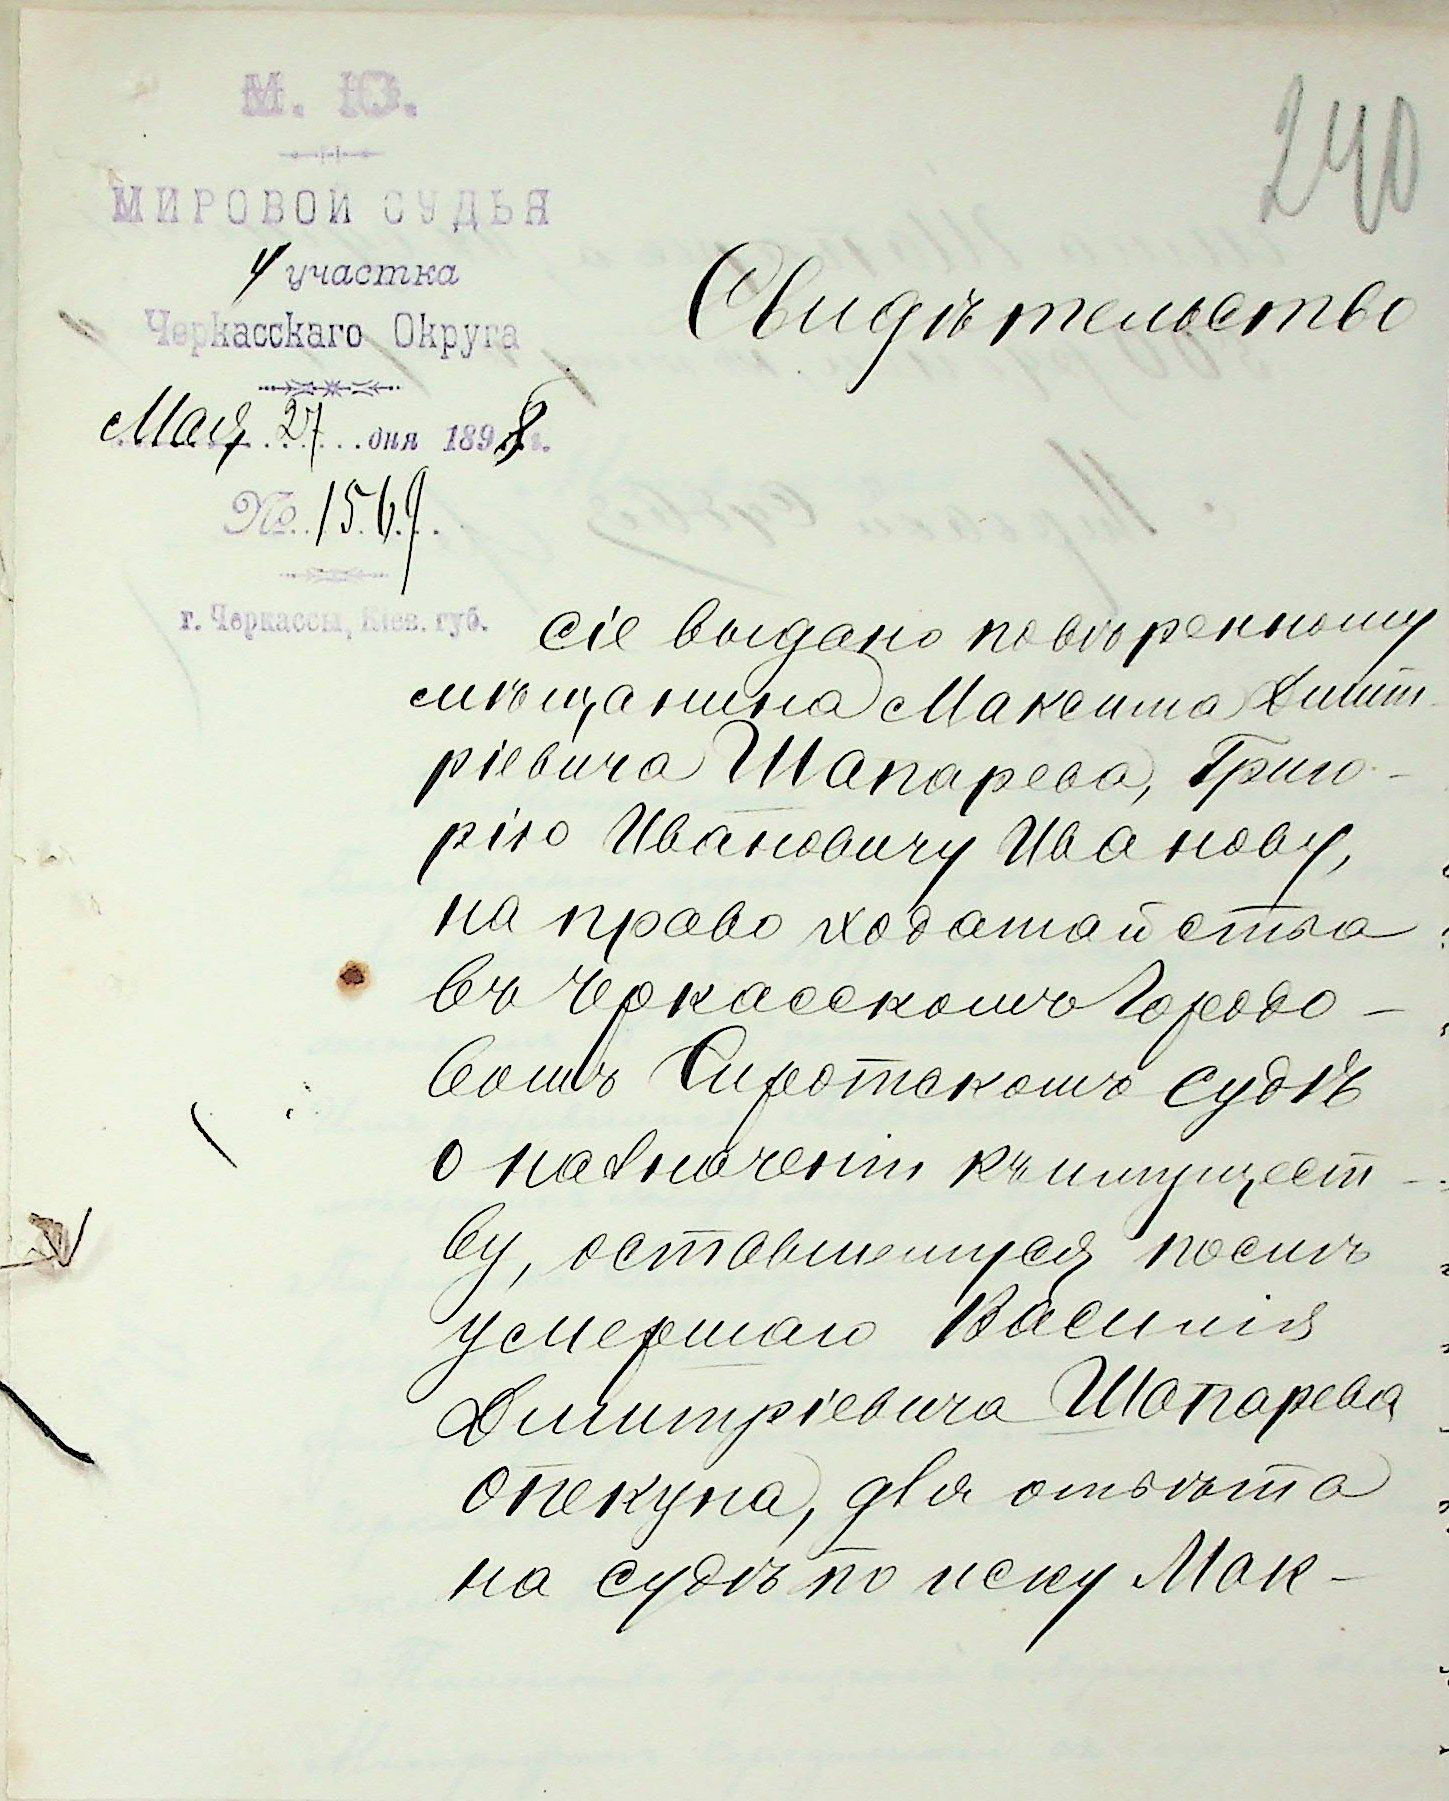 240
М. Ю.
МИРОВОЙ СУДЬЯ
4 участка
Черкасскаго Округа
Мая 27 дня 1898 г.
№ 1569
г. Черкассы, Кіев. губ.
Свидѣтельство
Сіе выдано повѣренному
мѣщанина Максима Димит-
ріевича Шапарева, Григо-
рію Ивановичу Иванову,
на право ходатайства
въ Черкасскомъ Городо-
вомъ Сиротскомъ Судѣ
о назначеніи къ имущест-
ву, оставшемуся послѣ
умершаго Василія
Димитріевича Шапарева
опекуна, для отвѣта
на судѣ по иску Мак-